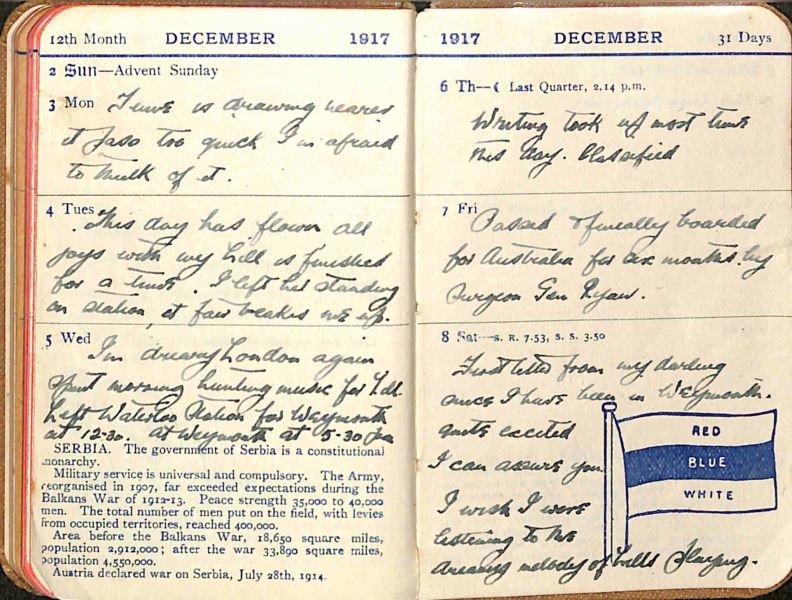 12th Month DECEMBER 1917
2 Sun—Advent Sunday
3 Mon Time is drawing nearer
it too quick I'm afraid
to think of it.
4 Tues This day has flown all
joys with my Lill is finished
for a time. I left her standing
on station, it fair breakes me up.
5 Wed
I'm dreary London again
Spent morning hunting music for Lill.
Left Waterloo Station for Weymouth
at 12-30. At Weymouth at 5-30 pm
SERBIA. The government of Serbia is a constitutional
monarchy.
Military service is universal and compulsory. The Army,
reorganised in 1907, far exceeded expectations during the
Balkans War of 1912-13. Peace strength 35,000 to 40,000
men. The total number of men put on the field, with levies
from occupied territories, reached 400,000.
Area before the Balkans War, 18,650 square miles,
population 2,912,000; after the war 33,890 square miles,
population 4,550,000.
Austria declared war on Serbia, July 28th, 1914.
1917 DECEMBER 31 Days
6 Th—☾ Last Quarter, 2.14 p.m.
Writing took up most time
this day. Classified
7 Fri
Passed & fineally boarded
for Australia for six months by
Surgeon Gen Ryan.
8 Sat—S. R. 7.53, S. S. 3.50
First letter from my darling
since I have been in Weymouth.
quite excited
I can assure you
I wish I were
listening to the
dreamy melody of Lills Playing.
RED
BLUE
WHITE